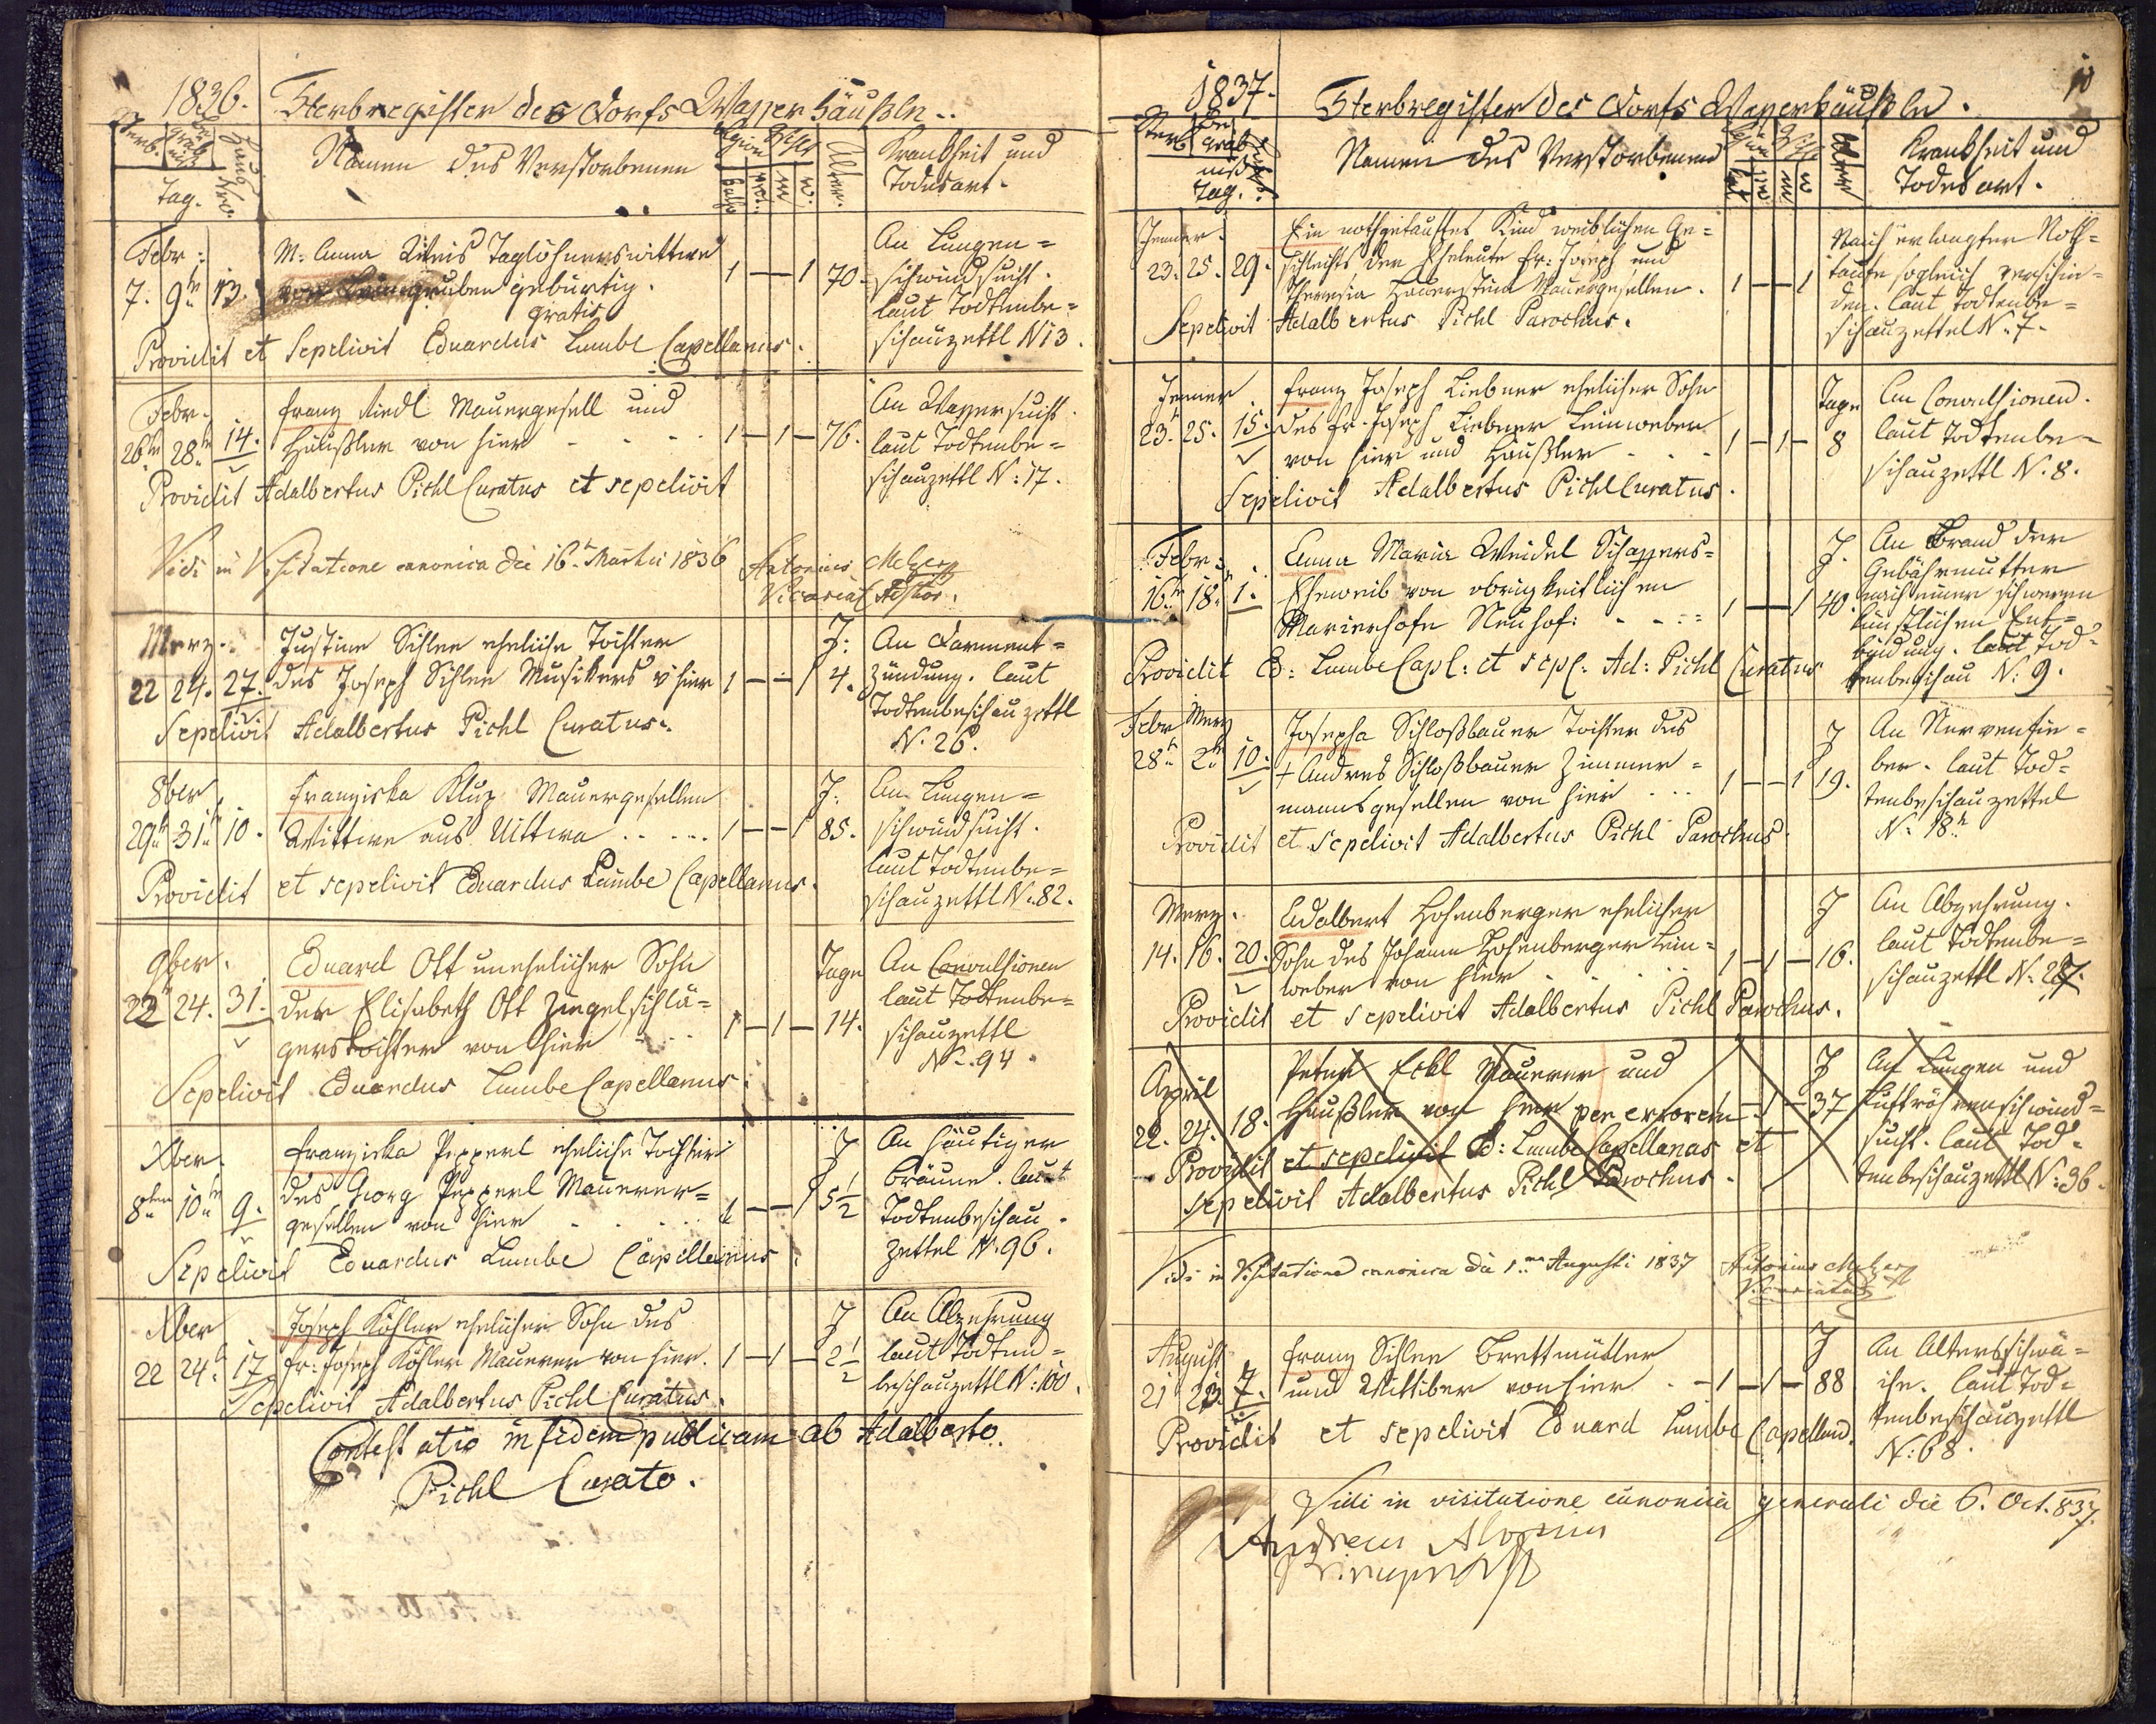 1836. Sterbregister des Dorfs Wasserhäußeln.
Sterb. Begräbniß Tag. Haus Nro.
Namen des Verstorbenen
Religion Geschlecht
kathol. prot. m. w. Alter.
Krankheit und
Todesart.
Febr:
7. 9tn 13.
M. Anna Weis Taglöhnerswittwe
gebürtig.
gratis
1 — 1 70
An Lungen=
schwindsucht.
laut Todtenbe=
schauzettl N 13.
Providit et Sepelivit Eduardus Lumbe Capellanus.
Febr.
26tn 28tn 14.
Franz Riedl Mauergesell und
Häußler von hier - - - -
1 — 1 — 76.
An Wassersucht.
laut Todtenbe=
schauzettl N: 17.
Providit Adalbertus Pichl Curatus et sepelivit
Vidi in Visitatione canonica die 16. Martii 1836 Antonius Melzer
Vicariats
Merz.
22 24. 27.
Justine Sihlen eheliche Tochter
des Joseph Sihlen Musikers v hier
1 — — 1 J: 4.
An Darment=
zündung. laut
Todtenbeschauzettl
N. 26.
Sepelivit Adalbertus Pichl Curatus.
8ber
29tn 31tn 10.
Franziska Kluz Mauergesellen
Wittwe aus Uittwa - - - -
1 — — 1 J: 85.
An Lungen=
schwindsucht.
laut Todtenbe=
schauzettl N: 82.
Providit et sepelivit Eduardus Lumbe Capellanus.
9ber.
22 24. 31.
Eduard Ott unehelicher Sohn
der Elisabeth Ott Ziegelschlä=
gerstochter von hier - - -
1 — 1 — Tage 14.
An Convulsionen
laut Todtenbe=
schauzettl
N. 94.
Sepelivit Eduardus Lumbe Capellanus.
Xber.
8ten 10tn 9.
Franziska Pepperl eheliche Tochter
des Georg Pepperl Maurer=
gesellen von hier - - - -
1 — — 1 J 5½
An häutiger
Bräune. laut
Todtenbeschau
zettel N. 96.
Sepelivit Eduardus Lumbe Capellanus.
Xber
22 24t. 17.
Joseph Köhler ehelicher Sohn des
Fr: Joseph Köhler Maurer von hier.
1 — 1 — J 2½
An Abzehrung
laut Todten=
beschauzettl N: 100.
Sepelivit Adalbertus Pichl Curatus.
Contestatio in fidem publicam ab Adalberto
Pichl Curato.
10
1837. Sterbregister des Dorfs Wasserhäußeln.
Sterb Begräbniß Tag.
Namen des Verstorbenen
m w Alter
Krankheit und
Todesart.
Jenner.
23. 25. 29.
Ein nothgetauftes Kind weiblichen Ge=
schlechts der Eheleute Fr: Joseph und
Theresia Mauergesellen.
1 — — 1
Nach erlangter Noth=
taufe sogleich verschie=
den. laut Todtenbe=
schauzettel N. 7.
Sepelivit Adalbertus Pichl Parochus.
Jenner
23. 25. 15.
Franz Joseph Liebner ehelicher Sohn
des Fr. Joseph Liebner Leinweber
von hier und Häußler - - -
1 — 1 — Tage 8
An Convulsionen.
laut Todtenbe=
schauzettl N. 8.
Sepelivit Adalbertus Pichl Curatus.
Febr:
16tn 18. 1.
Anna Maria Weidel Schaffers=
Eheweib von obrigkeitlichen
Maierhofe Neuhof: - - -
1 — 1 J. 40.
An Brand der
Gebährmutter
nach einer schweren
künstlichen Ent=
bindung. laut Tod=
tenbeschau N: 9.
Providit E: Lumbe Capl: et sepl: Ad: Pichl Curatus
Febr Merz
28tn 2tn 10.
Josepha Schloßbauer Tochter des
+ Andres Schloßbauer Zimmer=
mannsgesellen von hier - - -
1 — — 1 J 19.
An Nervenfie=
ber. laut Tod=
tenbeschauzettel
N. 18.
Providit et Sepelivit Adalbertus Pichl Parochus.
Merz.
14. 16. 20.
Adalbert Hohenberger ehelicher
Sohn des Johann Hohenberger Lein=
weber von hier - - -
1 — 1 — J 16.
An Abzehrung.
laut Todtenbe=
schauzettl N. 27.
Providit et Sepelivit Adalbertus Pichl Parochus.
April
22. 24. 18.
Peter Eckl Maurer und
Häußler von hier per errorem
1 — J 37
An Lungen und
Luftröhrenschwind=
sucht. laut Tod=
tenbeschauzettl N: 36.
Providit et sepelivit Ed: Lumbe Capellanus et
sepelivit Adalbertus Pichl Parochus.
Vidi in Visitatione canonica die 1ma Augusti 1837 Antonius Melzer
August
21 23. 7.
Franz Sihlen Brettmüller
und Wittiber von hier. -
1 — 1 — J 88
An Altersschwä=
che. laut Tod=
tenbeschauzettl
N: 68.
Providit et sepelivit Eduard Lumbe Capellan.
Vidi in visitatione canonica generali die 6. Oct. 837.
Andreas Aloysius